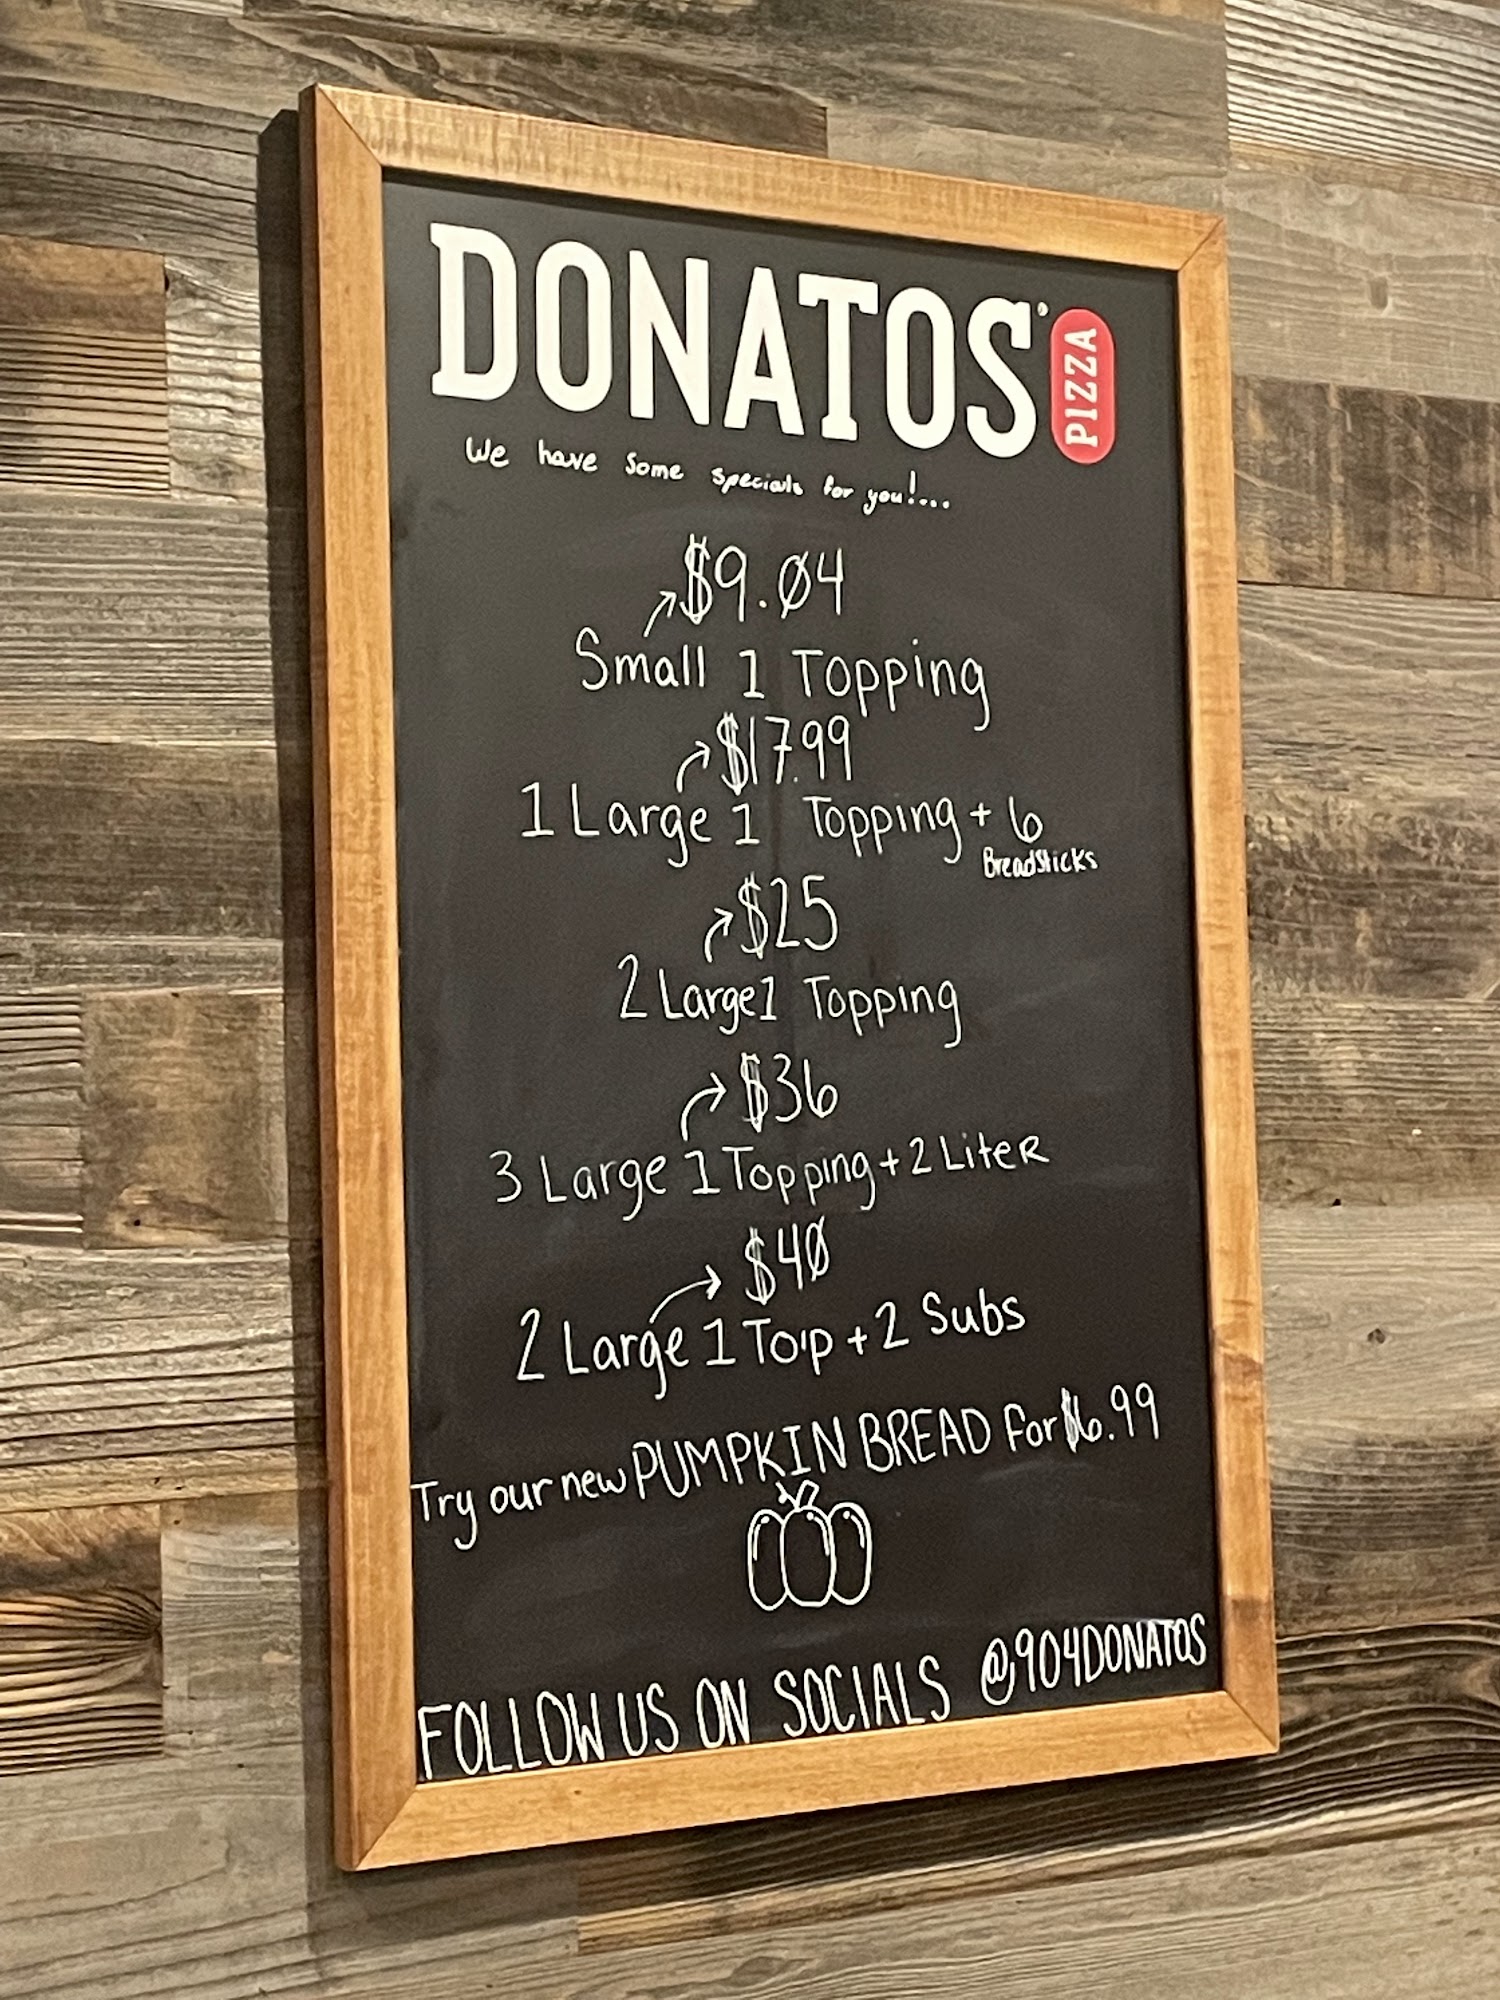 DONATOS®
PIZZA
We have some specials for you!...
$9.04
Small 1 Topping
$17.99
1 Large 1 Topping + 6
Breadsticks
$25
2 Large 1 Topping
$36
3 Large 1 Topping + 2 Liter
$40
2 Large 1 Top + 2 Subs
Try our new PUMPKIN BREAD for $6.99
FOLLOW US ON SOCIALS @904DONATOS